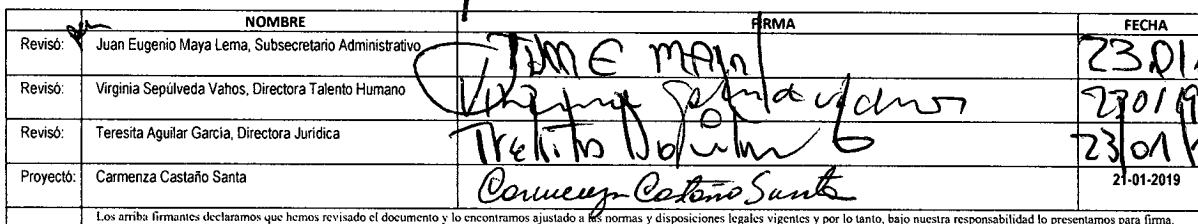 NOMBRE FIRMA FECHA
Revisó: Juan Eugenio Maya Lema, Subsecretario Administrativo
Revisó: Virginia Sepúlveda Vahos, Directora Talento Humano
Revisó: Teresita Aguilar García, Directora Jurídica
Proyectó: Carmenza Castaño Santa Carmenza Castaño Santa 21-01-2019
Los arriba firmantes declaramos que hemos revisado el documento y lo encontramos ajustado a las normas y disposiciones legales vigentes y por lo tanto, bajo nuestra responsabilidad lo presentamos para firma.